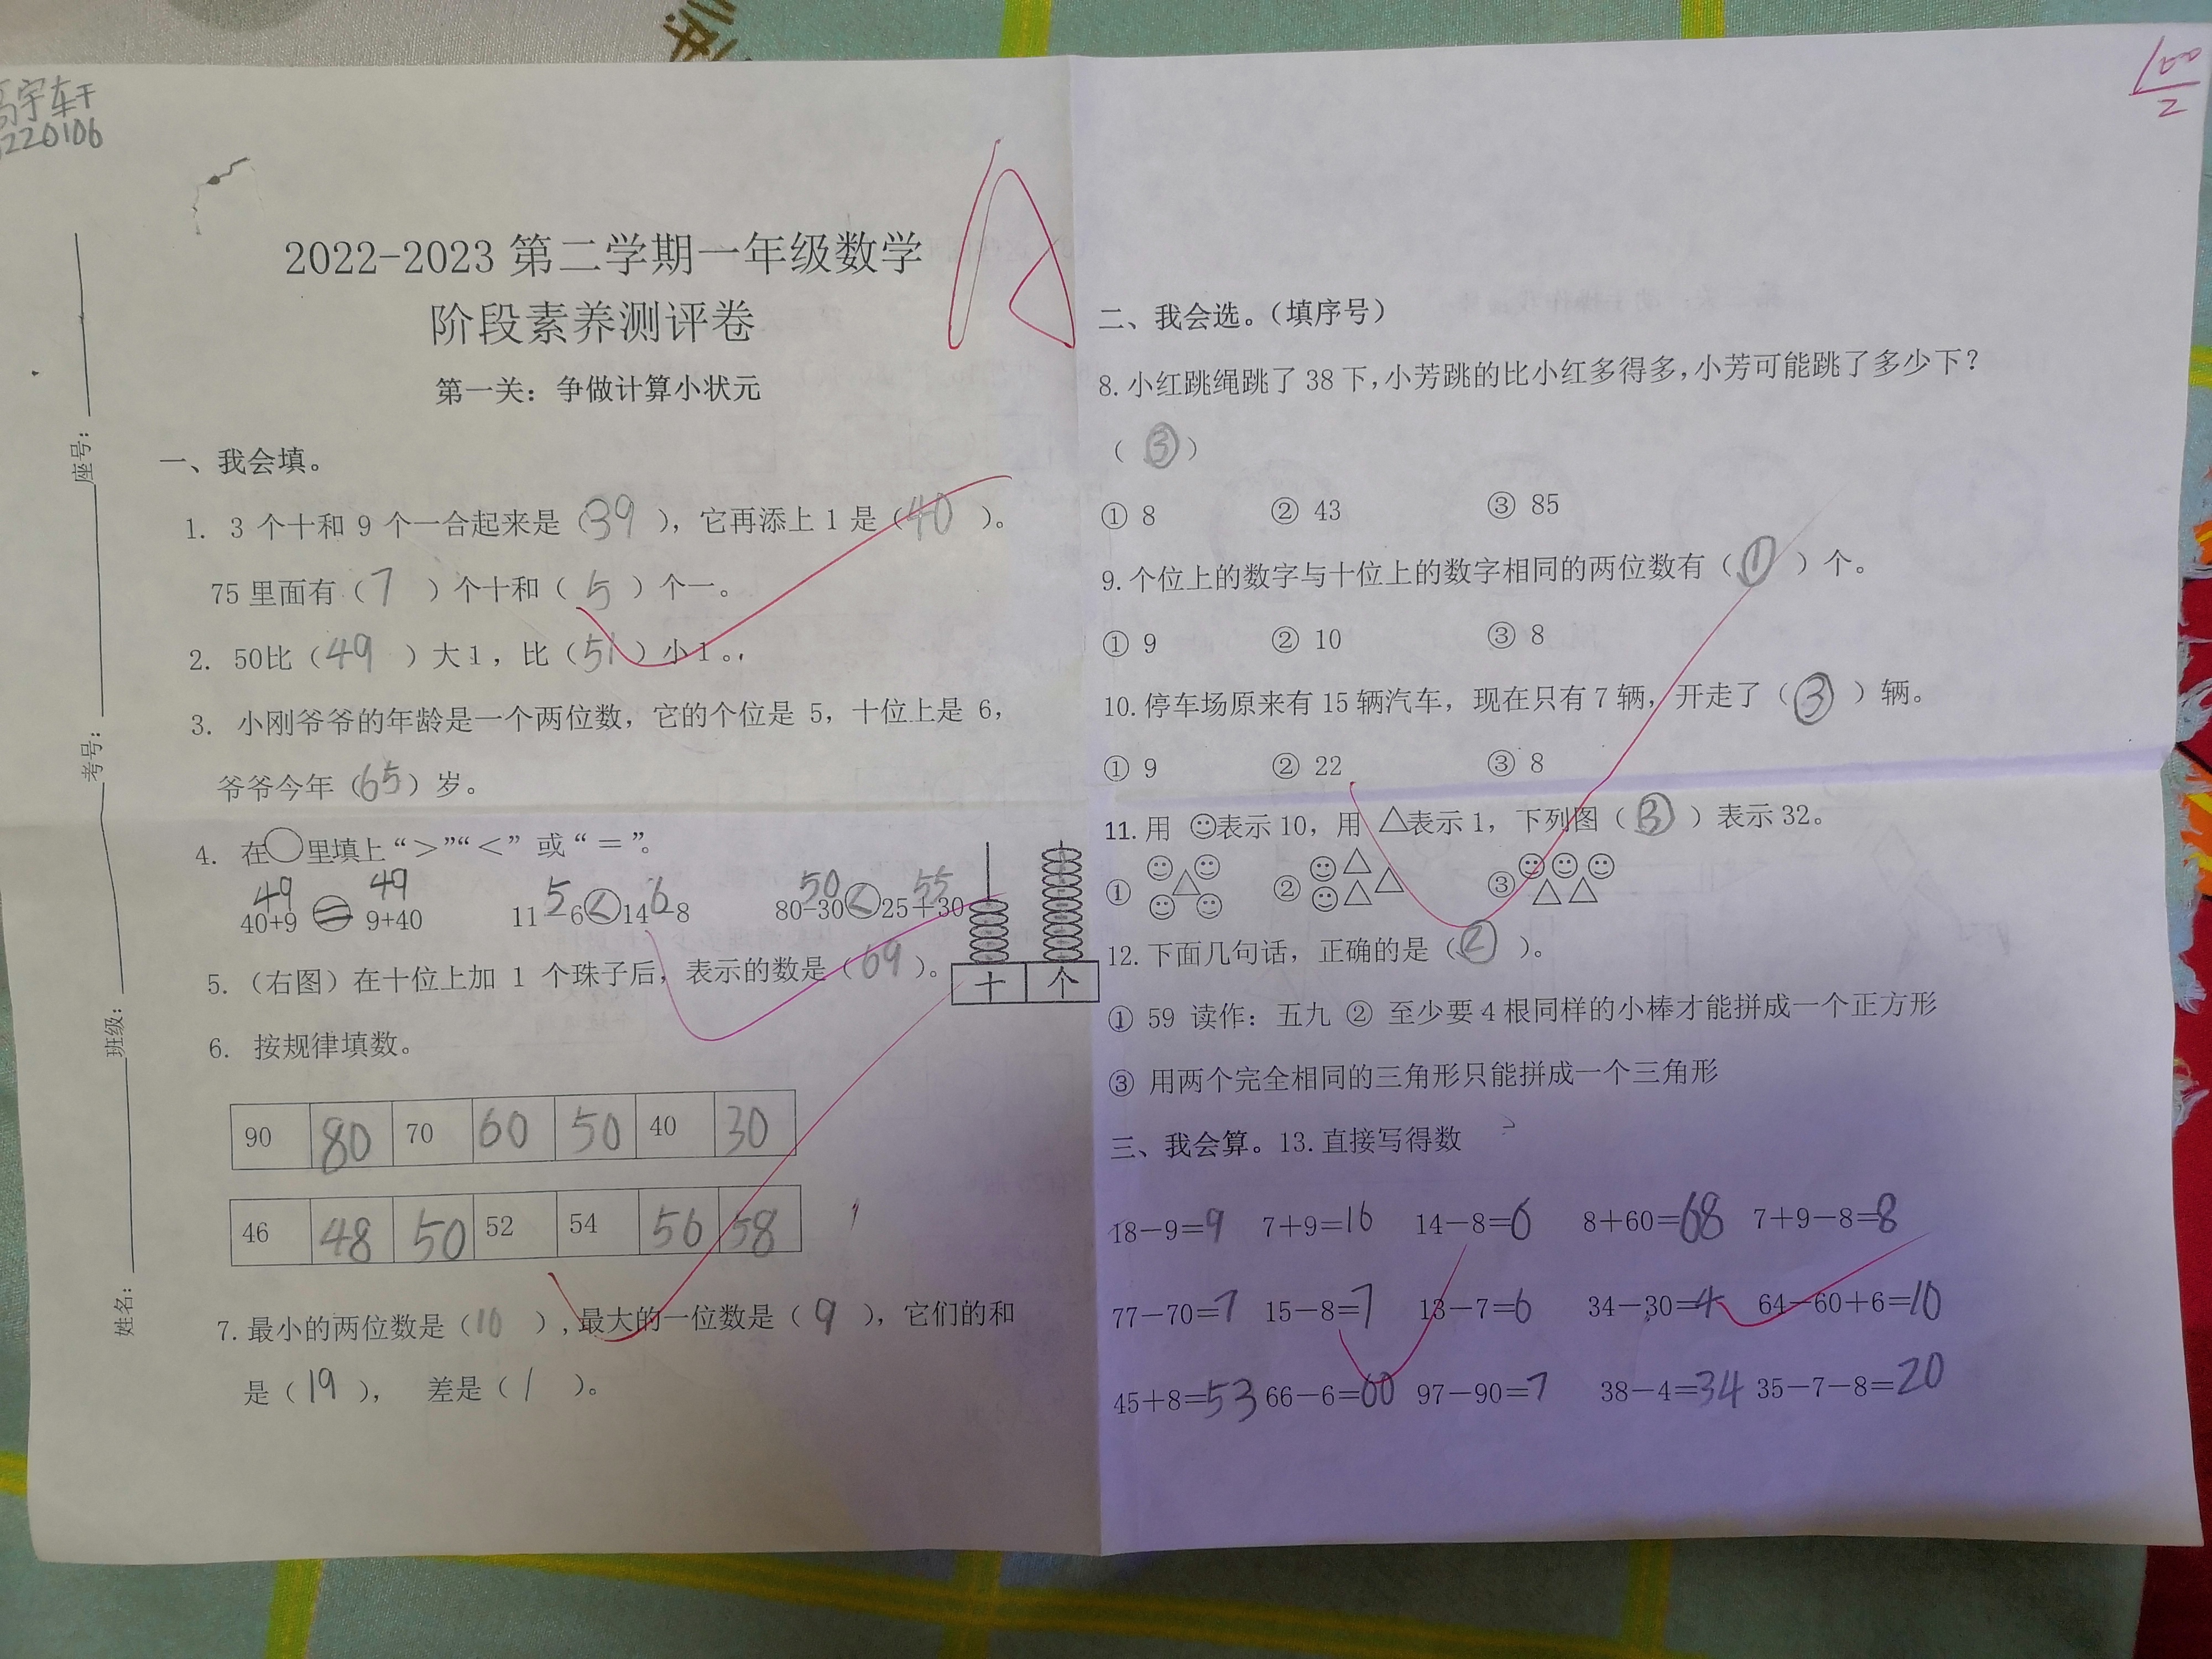 高宇轩
220106
100
2
A
2022-2023 第二学期一年级数学
阶段素养测评卷
第一关：争做计算小状元
座号：
考号：
班级：
姓名：
一、我会填。
1. 3 个十和 9 个一合起来是（39），它再添上 1 是（40）。
75 里面有（7）个十和（5）个一。
2. 50比（49）大1，比（51）小1。
3. 小刚爷爷的年龄是一个两位数，它的个位是 5，十位上是 6，
爷爷今年（65）岁。
4. 在○里填上“＞”“＜” 或“＝”。
49 49 5 6 50 55
40+9 = 9+40 11-6 < 14-8 80-30 < 25+30
5.（右图）在十位上加 1 个珠子后，表示的数是（69）。
十 个
6. 按规律填数。
90 80 70 60 50 40 30
46 48 50 52 54 56 58
7. 最小的两位数是（10），最大的一位数是（9），它们的和
是（19）， 差是（1）。
二、我会选。（填序号）
8. 小红跳绳跳了 38 下，小芳跳的比小红多得多，小芳可能跳了多少下？
（③）
① 8 ② 43 ③ 85
9. 个位上的数字与十位上的数字相同的两位数有（①）个。
① 9 ② 10 ③ 8
10. 停车场原来有 15 辆汽车，现在只有 7 辆，开走了（③）辆。
① 9 ② 22 ③ 8
11. 用 ☺表示 10，用 △表示 1，下列图（③）表示 32。
① ② ③
12. 下面几句话，正确的是（②）。
① 59 读作：五九 ② 至少要 4 根同样的小棒才能拼成一个正方形
③ 用两个完全相同的三角形只能拼成一个三角形
三、我会算。13. 直接写得数
18－9=9 7＋9=16 14－8=6 8＋60=68 7＋9－8=8
77－70=7 15－8=7 13－7=6 34－30=4 64－60＋6=10
45＋8=53 66－6=60 97－90=7 38－4=34 35－7－8=20